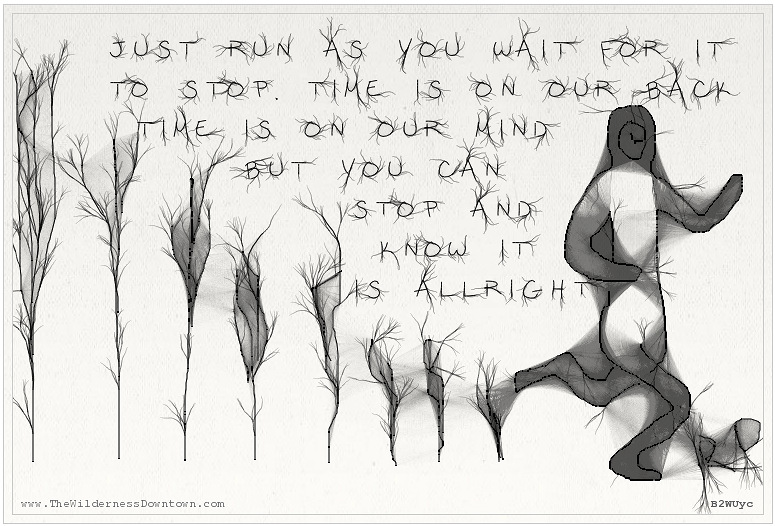 JUST RUN AS YOU WAIT FOR IT
TO STOP. TIME IS ON OUR BACK
TIME IS ON OUR MIND
BUT YOU CAN
STOP AND
KNOW IT
IS ALLRIGHT
www.TheWildernessDowntown.com
B2WUyc